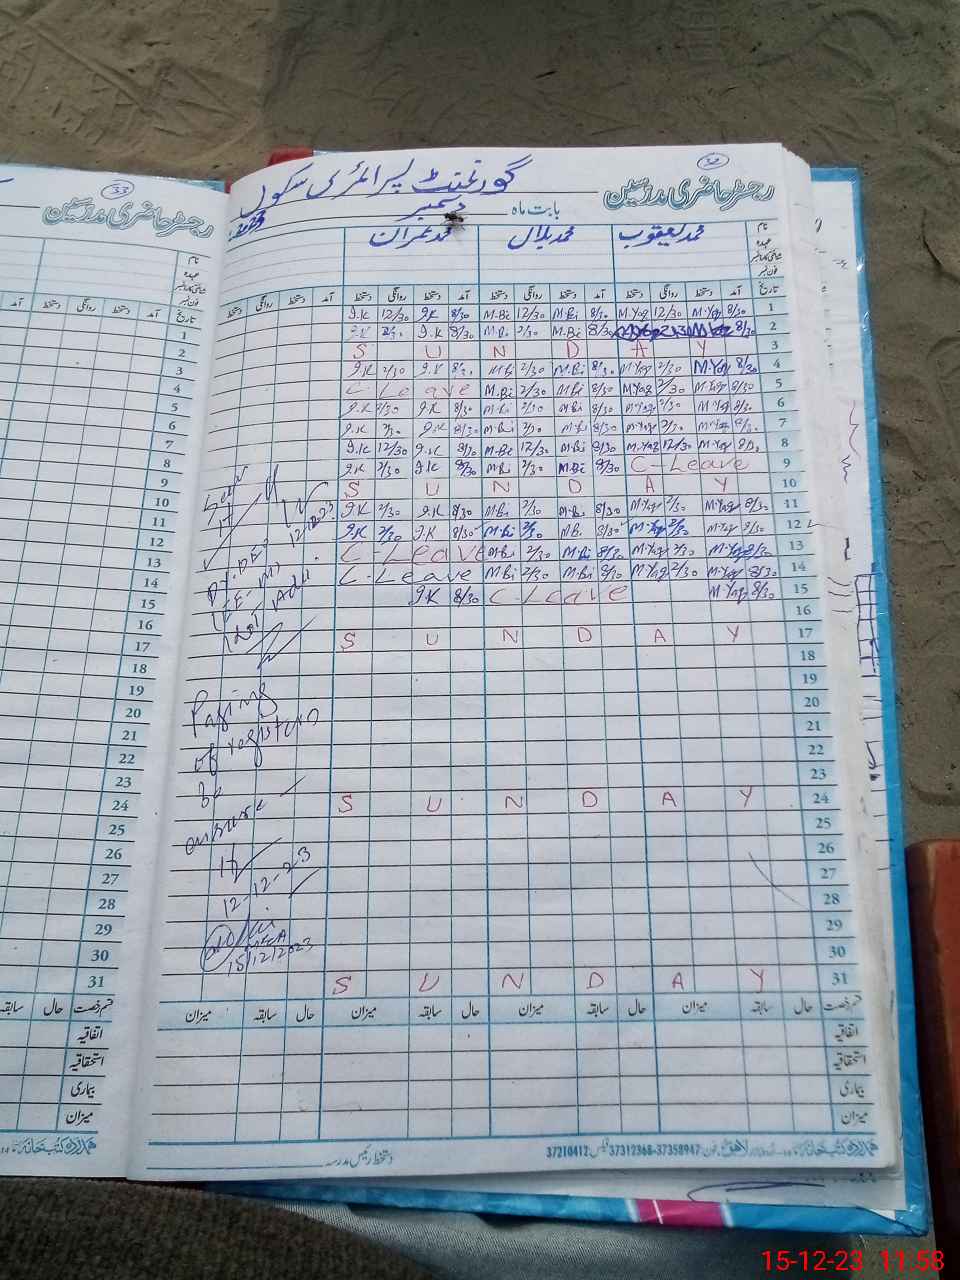 32
رجسٹر حاضری مدرسین
گورنمنٹ پرائمری سکول
بابت ماہ دسمبر 2023
نام
عہدہ
فون نمبر
محمد یعقوب
محمد بلال
محمد عمران
تاریخ آمد دستخط روانگی دستخط آمد دستخط روانگی دستخط آمد دستخط روانگی دستخط آمد دستخط روانگی دستخط
1 8/30 M.Yaq 12/30 M.Yaq 8/30 M.Bi 12/30 M.Bi 8/30 I.K 12/30 I.K
2 8/30 8/30 M.Bi 2/30 M.Bi 8/30 I.K 2/30 I.K
3 S U N D A Y
4 8/30 M.Yaq 2/30 M.Yaq 8/30 M.Bi 2/30 M.Bi 8/30 I.K 2/30 I.K
5 8/30 M.Yaq 2/30 M.Yaq 8/30 M.Bi 2/30 M.Bi C-Leave
6 8/30 M.Yaq 2/30 M.Yaq 8/30 M.Bi 2/30 M.Bi 8/30 I.K 2/30 I.K
7 8/30 M.Yaq 2/30 M.Yaq 8/30 M.Bi 2/30 M.Bi 8/30 I.K 2/30 I.K
8 8/30 M.Yaq 12/30 M.Yaq 8/30 M.Bi 12/30 M.Bi 8/30 I.K 12/30 I.K
9 C-Leave 8/30 M.Bi 2/30 M.Bi 8/30 I.K 2/30 I.K
10 S U N D A Y
11 8/30 M.Yaq 2/30 M.Yaq 8/30 M.Bi 2/30 M.Bi 8/30 I.K 2/30 I.K
12 8/30 M.Yaq 2/30 M.Yaq 8/30 M.Bi 2/30 M.Bi 8/30 I.K 2/30 I.K
13 8/30 M.Yaq 2/30 M.Yaq 8/30 M.Bi 2/30 M.Bi C-Leave
14 8/30 M.Yaq 2/30 M.Yaq 8/30 M.Bi 2/30 M.Bi C-Leave
15 8/30 M.Yaq C-Leave 8/30 I.K
16
17 S U N D A Y
18
19
20
21
22
23
24 S U N D A Y
25
26
27
28
29
30
31 S U N D A Y
Seen
Dy. DEO
(EE-M)
Paging
of register
be
ensure
12-12-23
15/12/2023
قسم رخصت حال سابقہ میزان حال سابقہ میزان حال سابقہ میزان حال سابقہ میزان
اتفاقیہ
استحقاقیہ
بیماری
میزان
دستخط رئیس مدرسہ
ہمدرد کتب خانہ
لاہور فون: 37358947-37312368 فیکس: 37210412
33
رجسٹر حاضری مدرسین
نام
عہدہ
فون نمبر
تاریخ آمد دستخط روانگی دستخط آمد
1
2
3
4
5
6
7
8
9
10
11
12
13
14
15
16
17
18
19
20
21
22
23
24
25
26
27
28
29
30
31
قسم رخصت حال سابقہ
اتفاقیہ
استحقاقیہ
بیماری
میزان
ہمدرد کتب خانہ
15-12-23 11:58